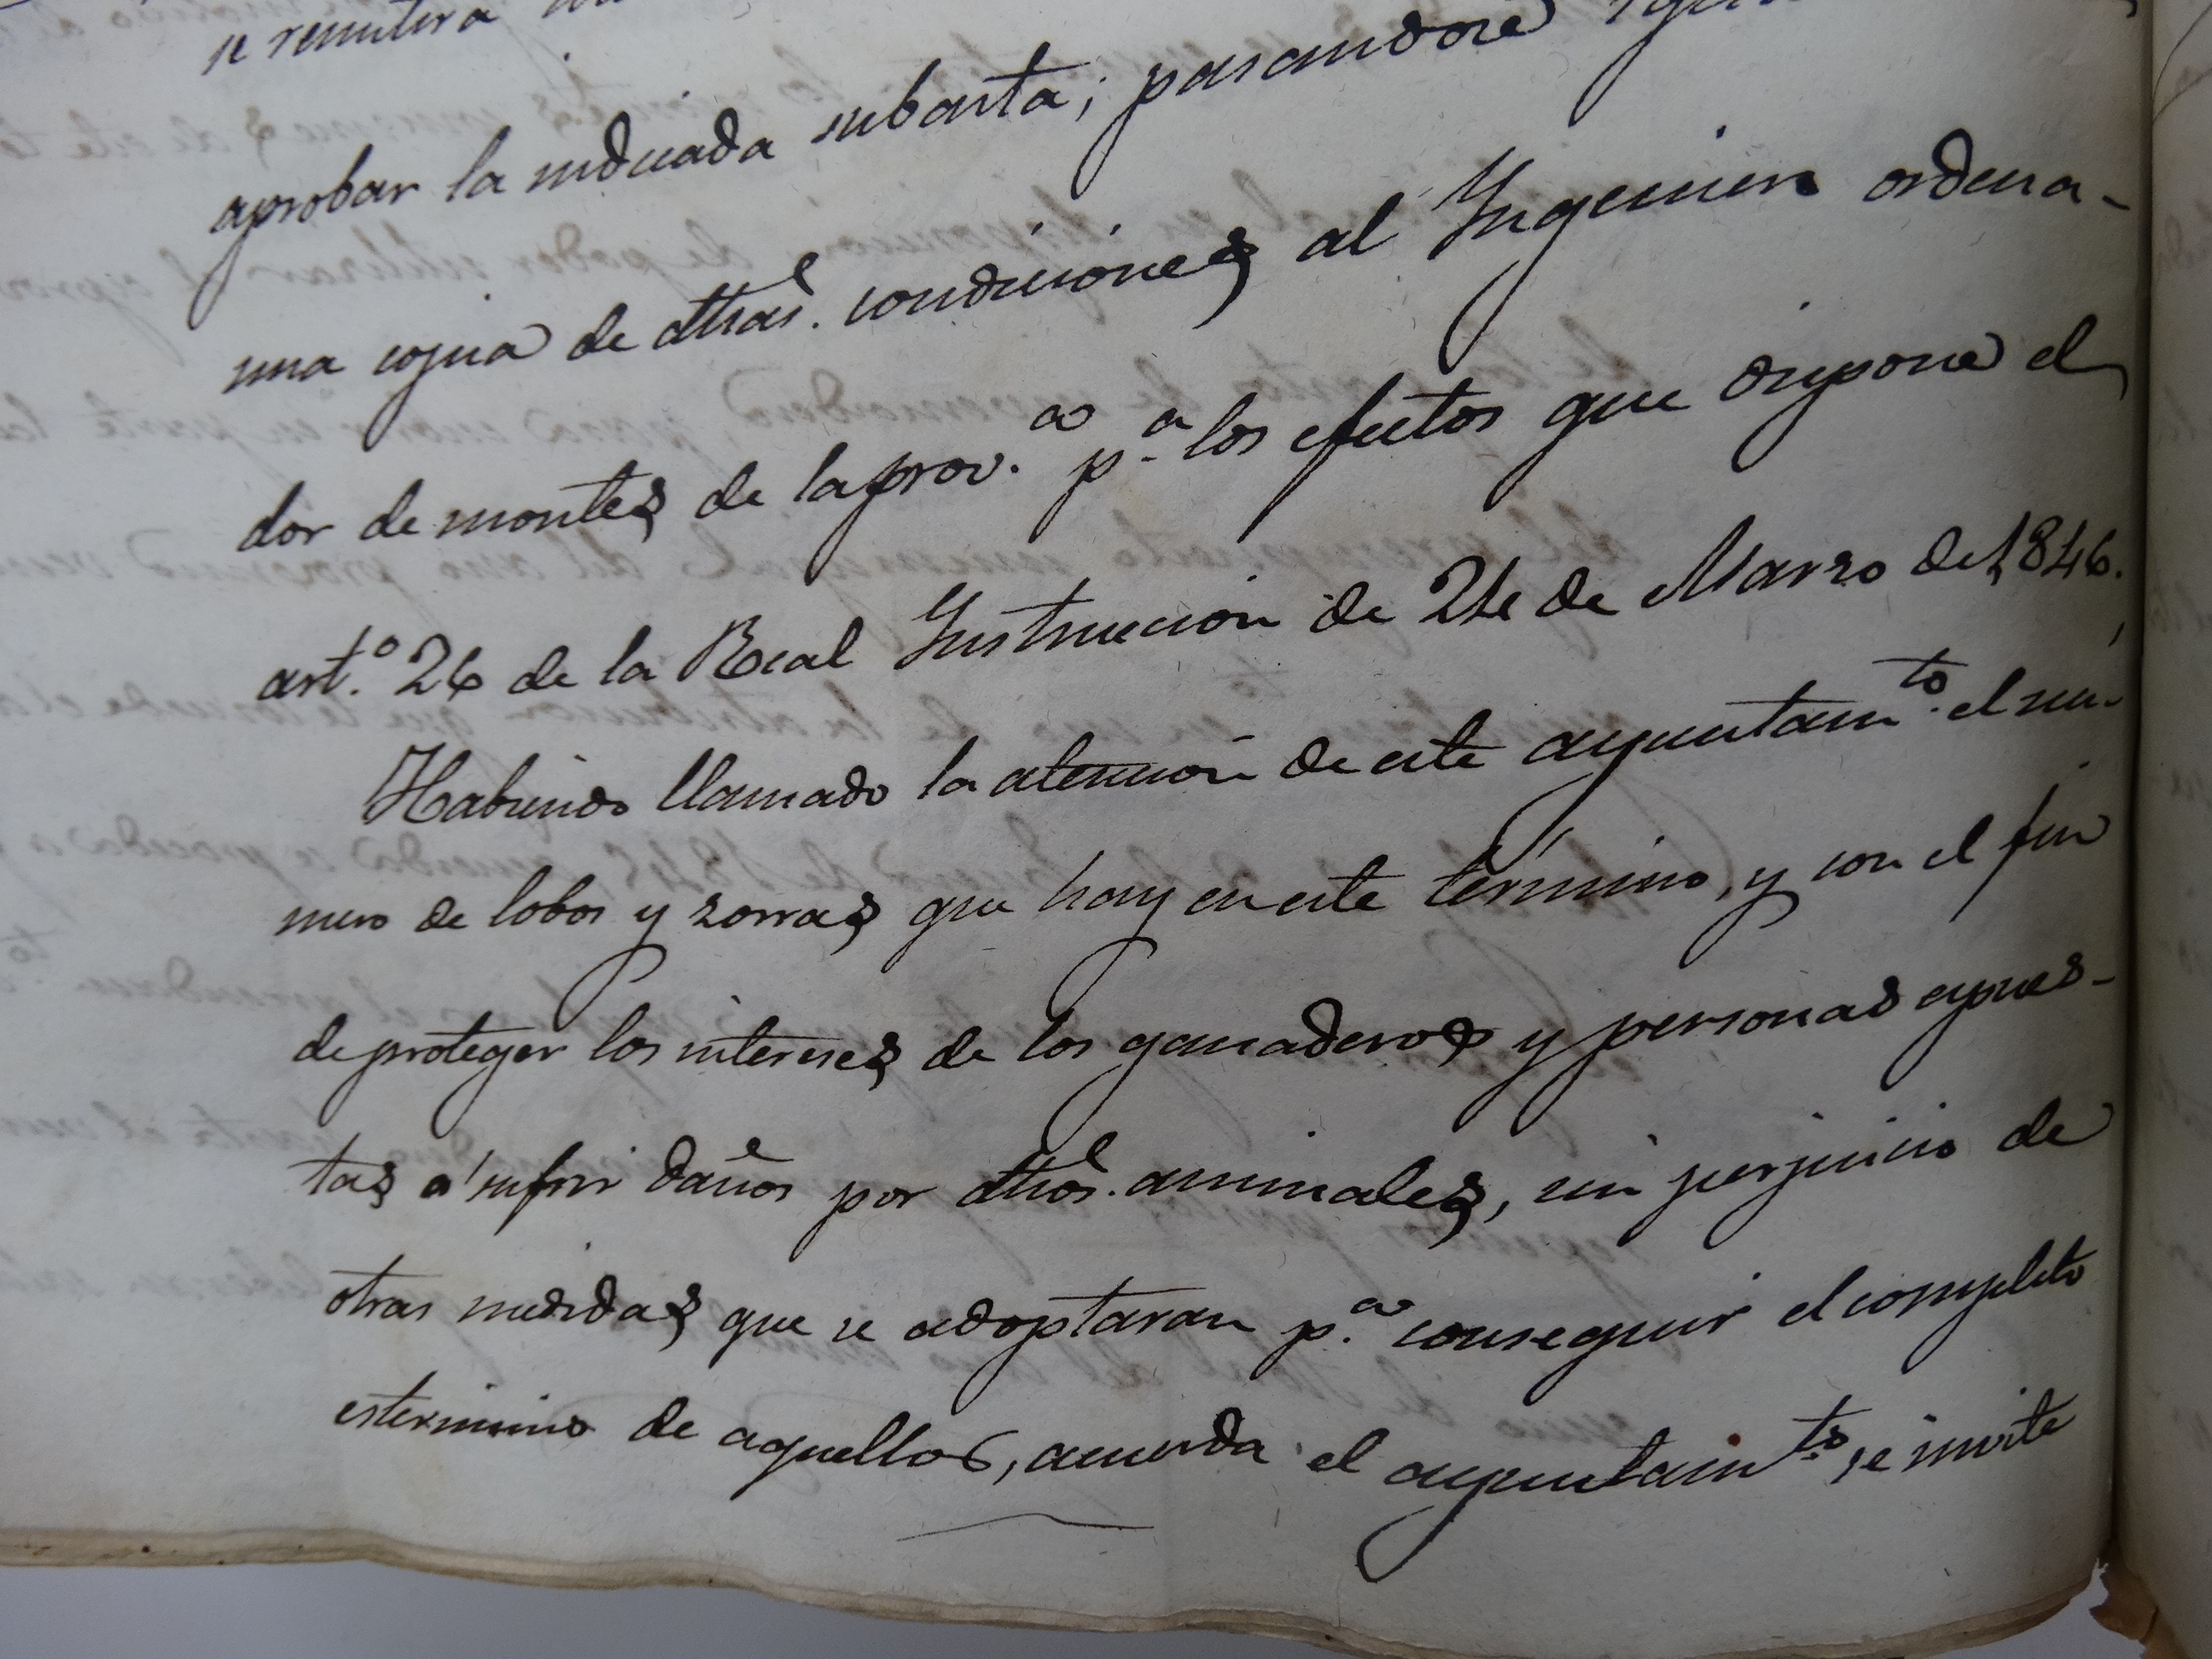 se remitira
aprobar la indicada subasta; pasandose
una copia de dhas. condiciones al Ingeniero ordena-
dor de montes de la prov.ª p.ª los efectos que dispone el
art.º 26 de la Real Instruccion de 24 de Marzo de 1846.
Habiendo llamado la atencion de este ayuntam.to el nú-
mero de lobos y zorras que hay en este término, y con el fin
de proteger los intereses de los ganaderos y personas espues-
tas á sufrir daños por dhos. animales, sin perjuicio de
otras medidas que se adoptaran p.ª conseguir el completo
esterminio de aquellos, acuerda el ayuntam.to se invite